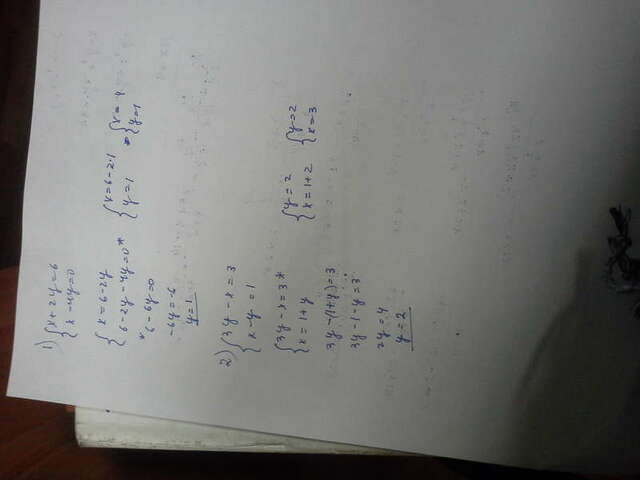 1) { x + 2y = 6
x - 4y = 0
{ x = 6 - 2y
6 - 2y - 4y = 0 *
*
6 - 6y = 0
-6y = -6
y = 1
{ x = 6 - 2·1
y = 1
* { x = 4
y = 1
2) { 3y - x = 3
x - y = 1
{ 3y - x = 3 *
x = 1 + y
3y - (1 + y) = 3
3y - 1 - y = 3
2y = 4
y = 2
{ y = 2
x = 1 + 2
{ y = 2
x = 3